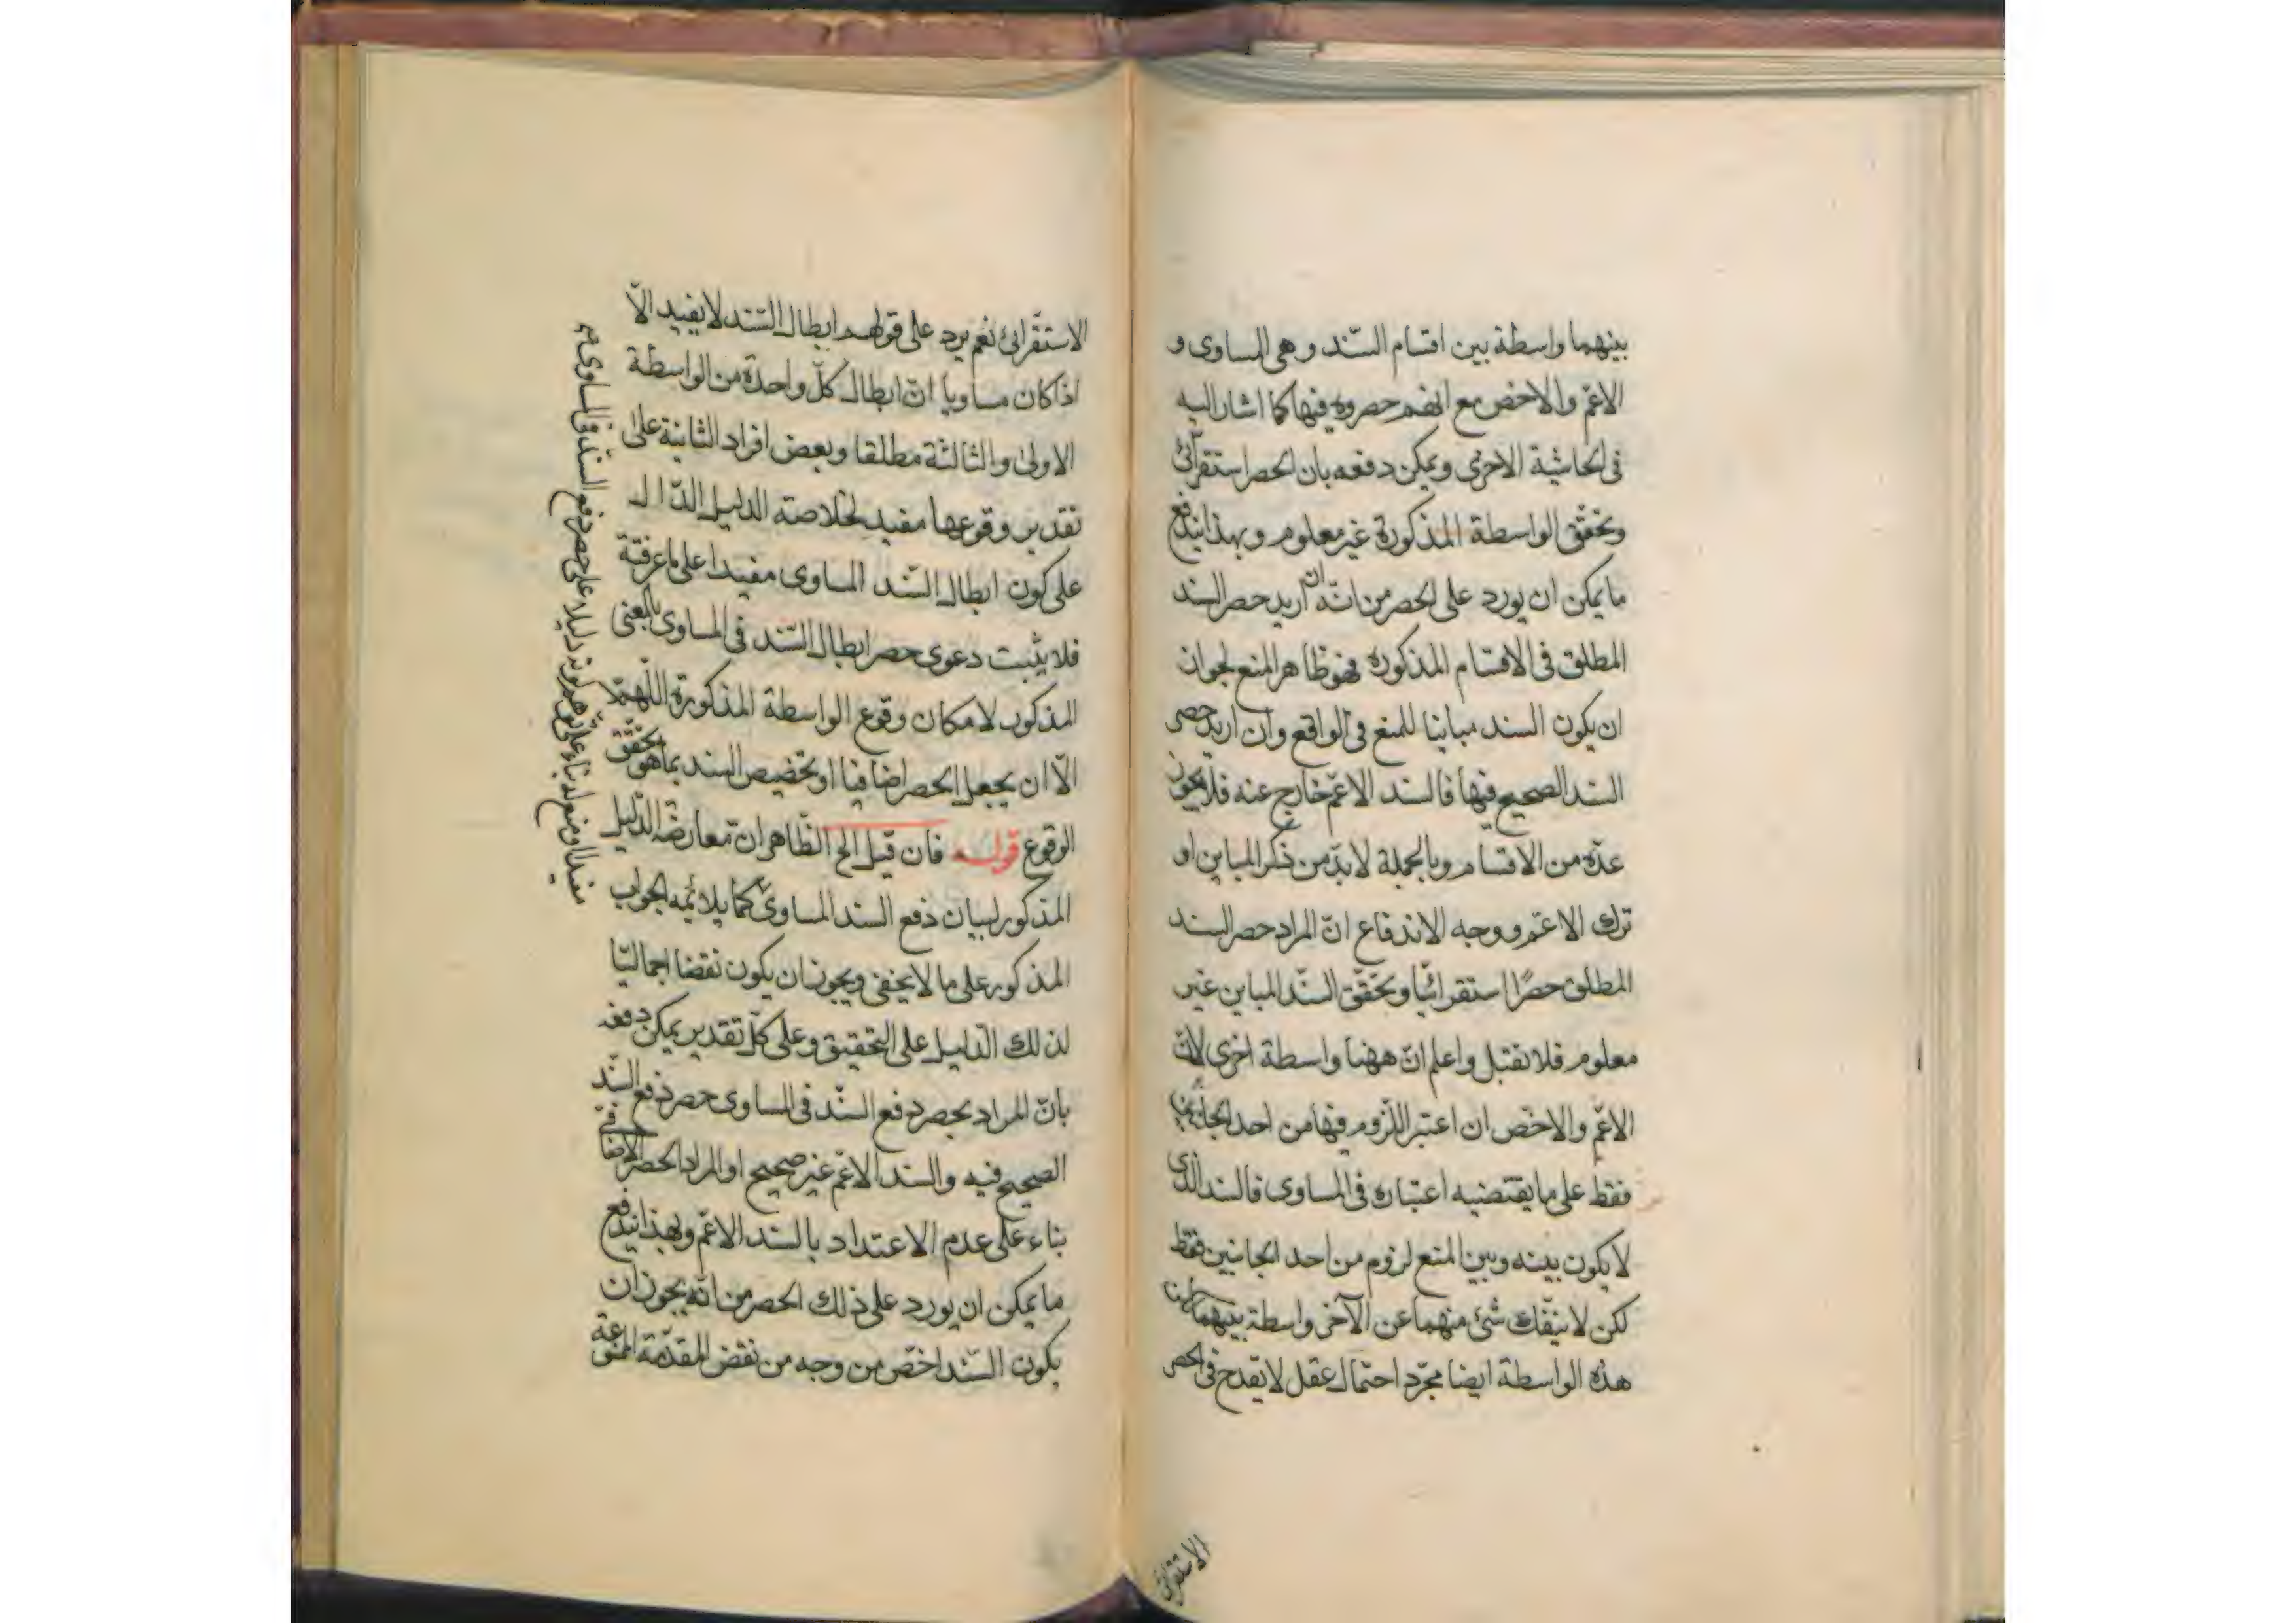 بينهما واسطة بين اقسام السّند وهى المساوى و
الاعمّ والاخصّ مع انهم حصروه فيها كما اشار اليه
فى الحاشية الاخرى ويمكن دفعه بان الحصر استقرائى
وتحقّق الواسطة المذكورة غير معلوم وبهذا يندفع
ما يمكن ان يورد على الحصر من انّه ان اريد حصر السند
المطلق فى الاقسام المذكوره فهو ظاهر المنع لجواز
ان يكون السند مباينا للمنع فى الواقع وان اريد حصر
السند الصحيح فيها فالسند الاعمّ خارج عنه فلا يجوز
عدّه من الاقسام وبالجملة لا بدّ من ذكر المباين او
ترك الاعمّ ووجه الاندفاع انّ المراد حصر السند
المطلق حصرًا استقرائيّا وتحقّق السنّد المباين غير
معلوم فلا نقبل واعلم انّ ههنا واسطة اخرى لانّ
الاعمّ والاخصّ ان اعتبر اللّزوم فيها من احد الجانبين
فقط على ما يقتضيه اعتباره فى المساوى فالسند الذى
لا يكون بينه وبين المنع لزوم من احد الجانبين فقط
لكن لا ينفّك شئ منهما عن الآخر واسطة بينهما
هذه الواسطة ايضا مجرّد احتمال عقل لا يقدح فى الحصر
الاستقرائى
الاستقرّائى نعم يرد على قولهم ابطال السّند لا يفيد الّا
اذا كان مساويا انّ ابطال كلّ واحدة من الواسطة
الاولى والثالثة مطلقا وبعض افراد الثانية على
تقدير وقوعها مفيد لخلاصته الدليل الدّال
على كون ابطال السّند المساوى مفيدا على ما عرفته
فلا يثبت دعوى حصر ابطال السّند فى المساوى بالمعنى
المذكور لامكان وقوع الواسطة المذكورة اللّهمّ
الّا ان يجعل الحصر اضافيا او تخصيص السند بما هو تحقّق
الوقوع قوله فان قيل الخ الظّاهر انّ معارضة الدّليل
المذكور لبيان دفع السند المساوى كما يلائمه الجواب
المذكور على ما لا يخفى ويجوز ان يكون نقضا اجماليّا
لذلك الدّليل على التحقيق وعلى كلّ تقدير يمكن دفعه
بانّ المراد بحصر دفع السنّد فى المساوى حصر دفع السنّد
الصحيح فيه والسند الاعمّ غير صحيح او المراد الحصر الاضافىّ
بناء على عدم الاعتداد بالسند الاعمّ وبهذا يندفع
ما يمكن ان يورد على ذلك الحصر من انّه يجوز ان
يكون السّند اخصّ من وجه من نقض المقدّمة الممنوعة
على حصر دفع السند فى المساوى